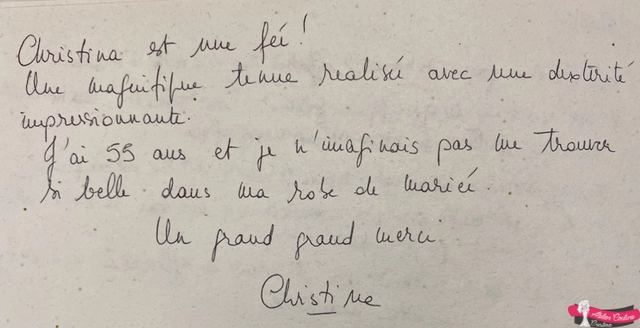 Christina est une fée !
Une magnifique tenue realisée avec une dextérité
impressionnante.
J'ai 55 ans et je n'imaginais pas me trouver
si belle dans ma robe de mariée.
Un grand grand merci
Christine